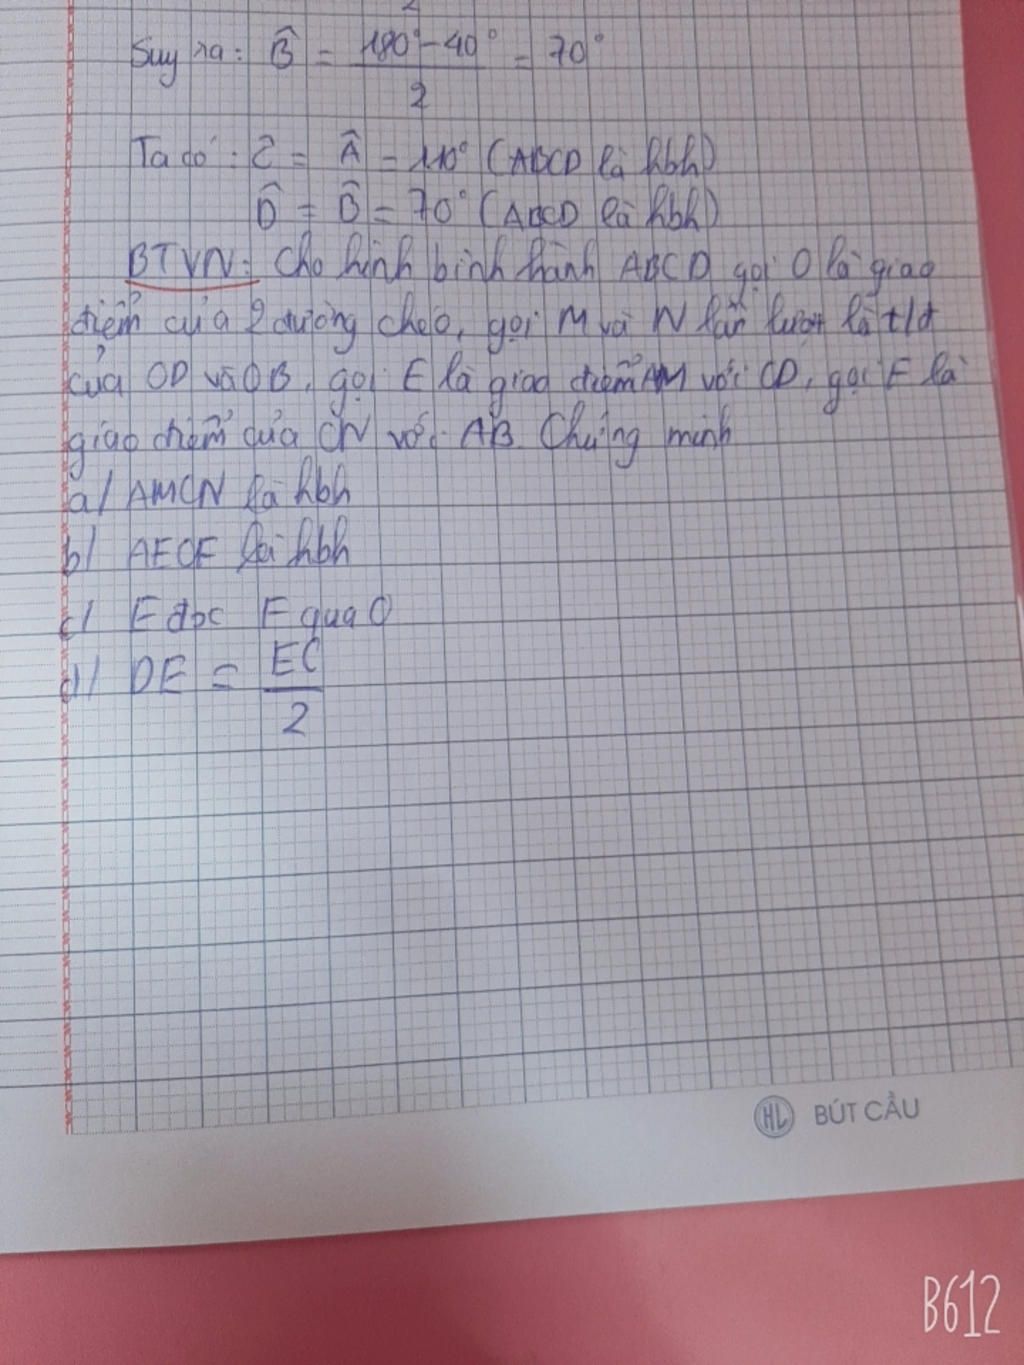 2
Suy ra: B̂ = (180° - 40°)/2 = 70°
Ta có: Ĉ = Â = 110° (ABCD là hbh)
D̂ = B̂ = 70° (ABCD là hbh)
BTVN: Cho hình bình hành ABCD gọi O là giao
điểm của 2 đường chéo, gọi M và N lần lượt là t/đ
của OD và OB, gọi E là giao điểm AM với CD, gọi F là
giao điểm của CN với AB Chứng minh
a/ AMCN là hbh
b/ AECF là hbh
c/ E đ/x F qua O
d/ DE = EC/2
HL BÚT CẦU
B612